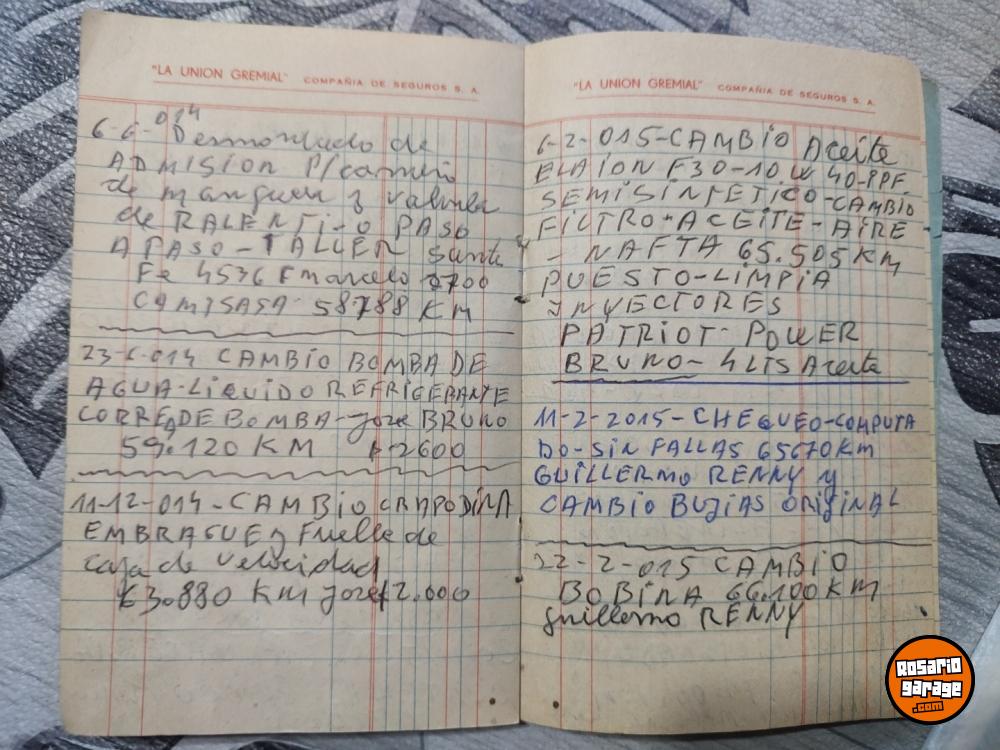 "LA UNION GREMIAL" COMPAÑIA DE SEGUROS S. A.
6-6-014 Desmontado de
ADMISION P/cambio
de manguera y valvula
de RALENTI-O PASO
A PASO-TALLER Santa
Fe 4536 F marcelo 700
CAMISASA 58788 KM
23-6-014 CAMBIO BOMBA DE
AGUA-LIQUIDO REFRIGERANTE
CORREA DE BOMBA-José BRUNO
59.120 KM $ 2600
11-12-014-CAMBIO CRAPODINA
EMBRAGUE y Fuelle de
caja de velocidad
63.880 KM José $2.000
"LA UNION GREMIAL" COMPAÑIA DE SEGUROS S. A.
6-2-015-CAMBIO Aceite
ELAION F30-10W40-PPF
SEMISINTETICO-CAMBIO
FILTRO-ACEITE-AIRE-
- NAFTA 65.505 KM
PUESTO-LIMPIA
INYECTORES
PATRIOT-POWER
BRUNO- 4 LTS Aceite
11-2-2015-CHEQUEO-COMPUTA
DO-SIN FALLAS 65670KM
GUILLERMO RENNY y
CAMBIO BUJIAS ORIGINAL
22-2-015 CAMBIO
BOBINA 66.100 KM
Guillermo RENNY
ROSARIO
garage
.com